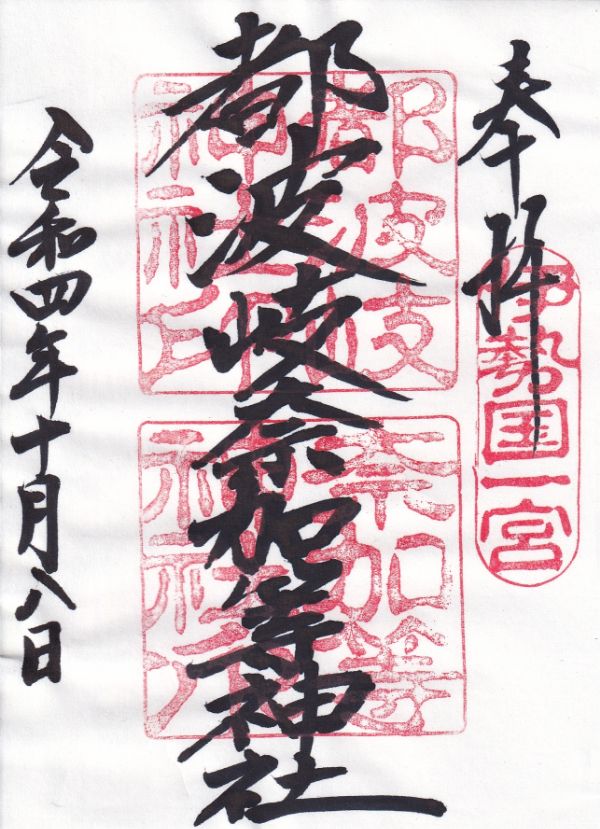 奉拝
伊勢国一宮
都波岐奈加等神社
都波岐
神社印
奈加等
神社印
令和四年十月八日